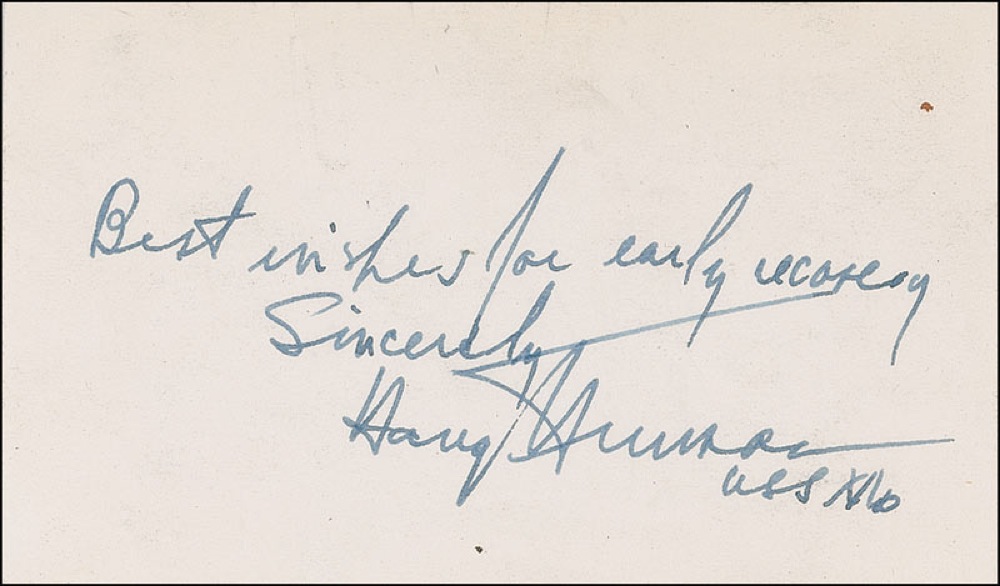 Best wishes for early recovery
Sincerely
Harry Truman
USS Mo